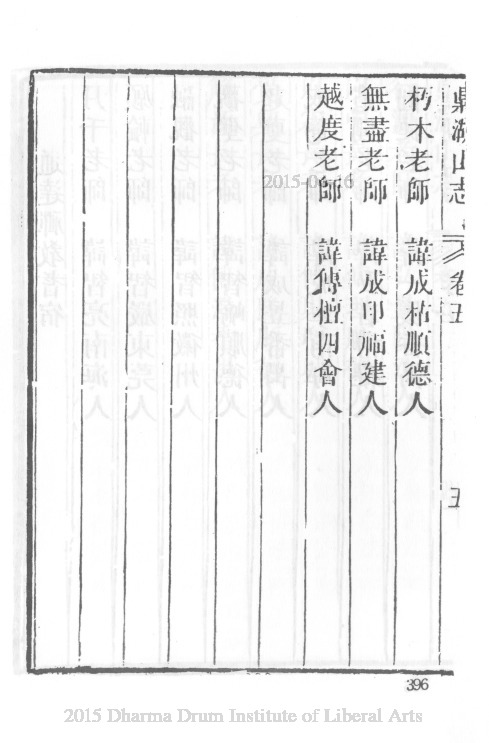 鼎湖山志 卷五 五
朽木老師 諱成枯順德人
無盡老師 諱成印福建人
越度老師 諱傳檀四會人
396
2015-04-16
2015 Dharma Drum Institute of Liberal Arts